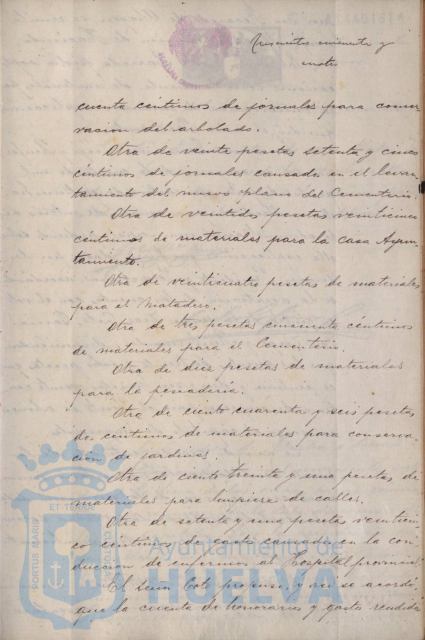 cuenta céntimos de jornales para conser
vacion del arbolado.
Otra de veinte pesetas setenta y cinco
céntimos de jornales causados en el levan-
tamiento del nuevo plano del Cementerio.
Otra de veintidos pesetas veinticinco
céntimos de materiales para la casa Ayun-
tamiento.
Otra de veinticuatro pesetas de materiales
para el Matadero.
Otra de tres pesetas cincuenta céntimos
de materiales para el Cementerio.
Otra de diez pesetas de materiales
para la
Otra de ciento cuarenta y seis pesetas
céntimos de materiales para conserva-
ción de jardines.
Otra de ciento treinta y una pesetas de
materiales para limpieza de calles.
Otra de setenta y una pesetas veintic
co céntimos de gasto causado en la con
duccion de enfermos al Hospital provincial
El Señor propuso y así se acordó,
que la cuenta de honorarios y gastos rendida
PORTUS MARIS
ET TERRAE
Ayuntamiento de
HUELVA